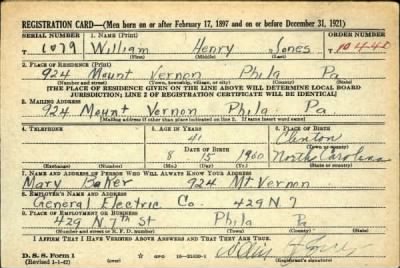 REGISTRATION CARD—(Men born on or after February 17, 1897 and on or before December 31, 1921)
SERIAL NUMBER 1. NAME (Print) ORDER NUMBER
T 1079 William Henry Jones T 10442
(First) (Middle) (Last)
2. PLACE OF RESIDENCE (Print)
924 Mount Vernon Phila Pa
(Number and street) (Town, township, village, or city) (County) (State)
[THE PLACE OF RESIDENCE GIVEN ON THE LINE ABOVE WILL DETERMINE LOCAL BOARD
JURISDICTION; LINE 2 OF REGISTRATION CERTIFICATE WILL BE IDENTICAL]
3. MAILING ADDRESS
924 Mount Vernon Phila Pa.
[Mailing address if other than place indicated on line 2. If same insert word same]
4. TELEPHONE 5. AGE IN YEARS 6. PLACE OF BIRTH
41 Clinton
DATE OF BIRTH (Town or county)
8 15 1900 North Carolina
(Exchange) (Number) (Mo.) (Day) (Yr.) (State or country)
7. NAME AND ADDRESS OF PERSON WHO WILL ALWAYS KNOW YOUR ADDRESS
Mary Baker 924 Mt Vernon
8. EMPLOYER'S NAME AND ADDRESS
General Electric Co. 429 N 7
9. PLACE OF EMPLOYMENT OR BUSINESS
429 N 7th St Phila Pa
(Number and street or R. F. D. number) (Town) (County) (State)
I AFFIRM THAT I HAVE VERIFIED ABOVE ANSWERS AND THAT THEY ARE TRUE.
D. S. S. Form 1
(Revised 1-1-42) GPO